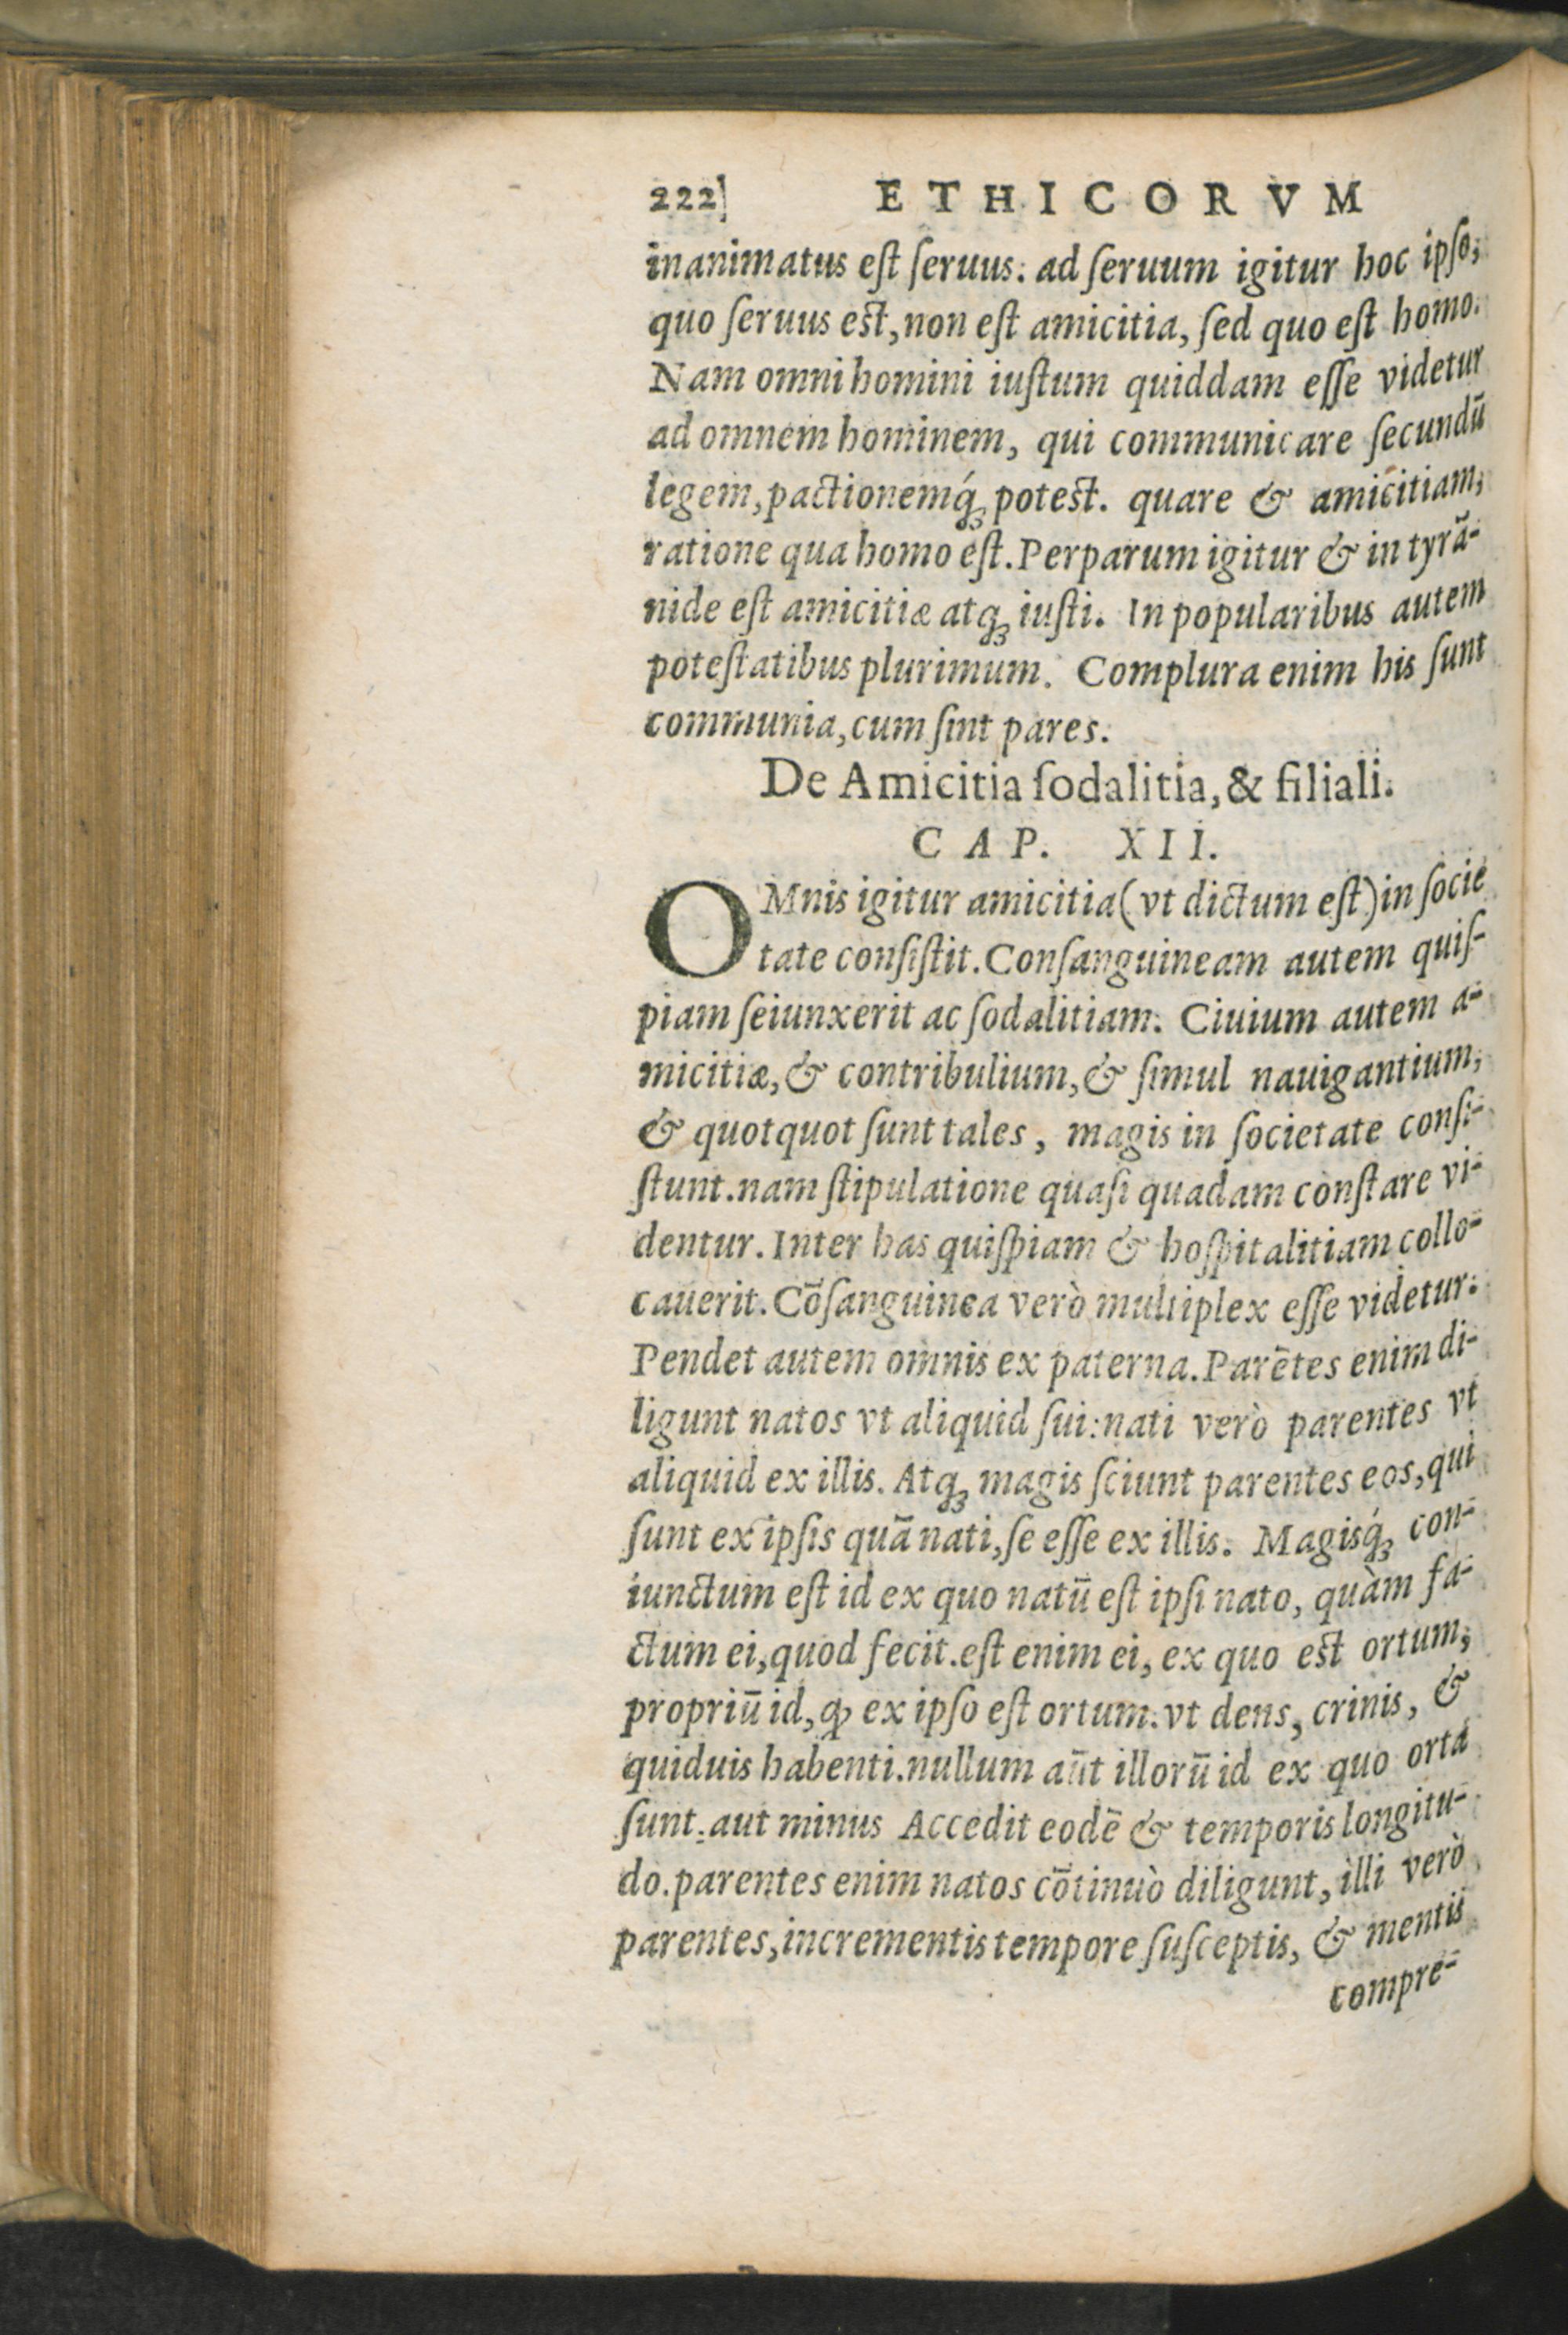 222] ETHICORVM
inanimatus eſt ſeruus: ad ſeruum igitur hoc ipſo,
quo ſeruus est, non eſt amicitia, ſed quo eſt homo.
Nam omni homini iuſtum quiddam eſſe videtur
ad omnem hominem, qui communicare ſecundū
legem, pactionemq́ꝫ potest. quare & amicitiam,
ratione qua homo eſt. Perparum igitur & in tyrā-
nide eſt amicitiæ atqꝫ iuſti. In popularibus autem
poteſtatibus plurimum. Complura enim his ſunt
communia, cum ſint pares.
De Amicitia ſodalitia, & filiali.
CAP. XII.
OMnis igitur amicitia (vt dictum eſt) in ſocie
tate conſiſtit. Conſanguineam autem quiſ-
piam ſeiunxerit ac ſodalitiam. Ciuium autem a-
micitiæ, & contribulium, & ſimul nauigantium,
& quotquot ſunt tales, magis in ſocietate conſi-
ſtunt. nam ſtipulatione quaſi quadam conſtare vi-
dentur. Inter has quiſpiam & hoſpitalitiam collo-
cauerit. Cōſanguinea verò multiplex eſſe videtur.
Pendet autem omnis ex paterna. Parētes enim di-
ligunt natos vt aliquid ſui: nati verò parentes vt
aliquid ex illis. Atqꝫ magis ſciunt parentes eos, qui
ſunt ex ipſis quā nati, ſe eſſe ex illis. Magisq́ꝫ con-
iunctum eſt id ex quo natū eſt ipſi nato, quàm fa-
ctum ei, quod fecit. eſt enim ei, ex quo est ortum,
propriū id, ꝙ ex ipſo eſt ortum. vt dens, crinis, &
quiduis habenti. nullum aūt illorū id ex quo orta
ſunt: aut minus Accedit eodē & temporis longitu-
do. parentes enim natos cōtinuò diligunt, illi verò
parentes, incrementis tempore ſuſceptis, & mentis
compre-